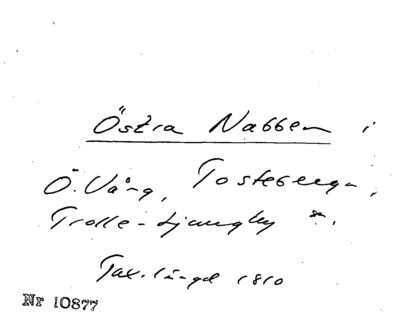 Östra Nabben i
Ö. Vång, Tosteberga,
Trolle-Ljungby sn.
Tax. längd 1810
Nr 10877